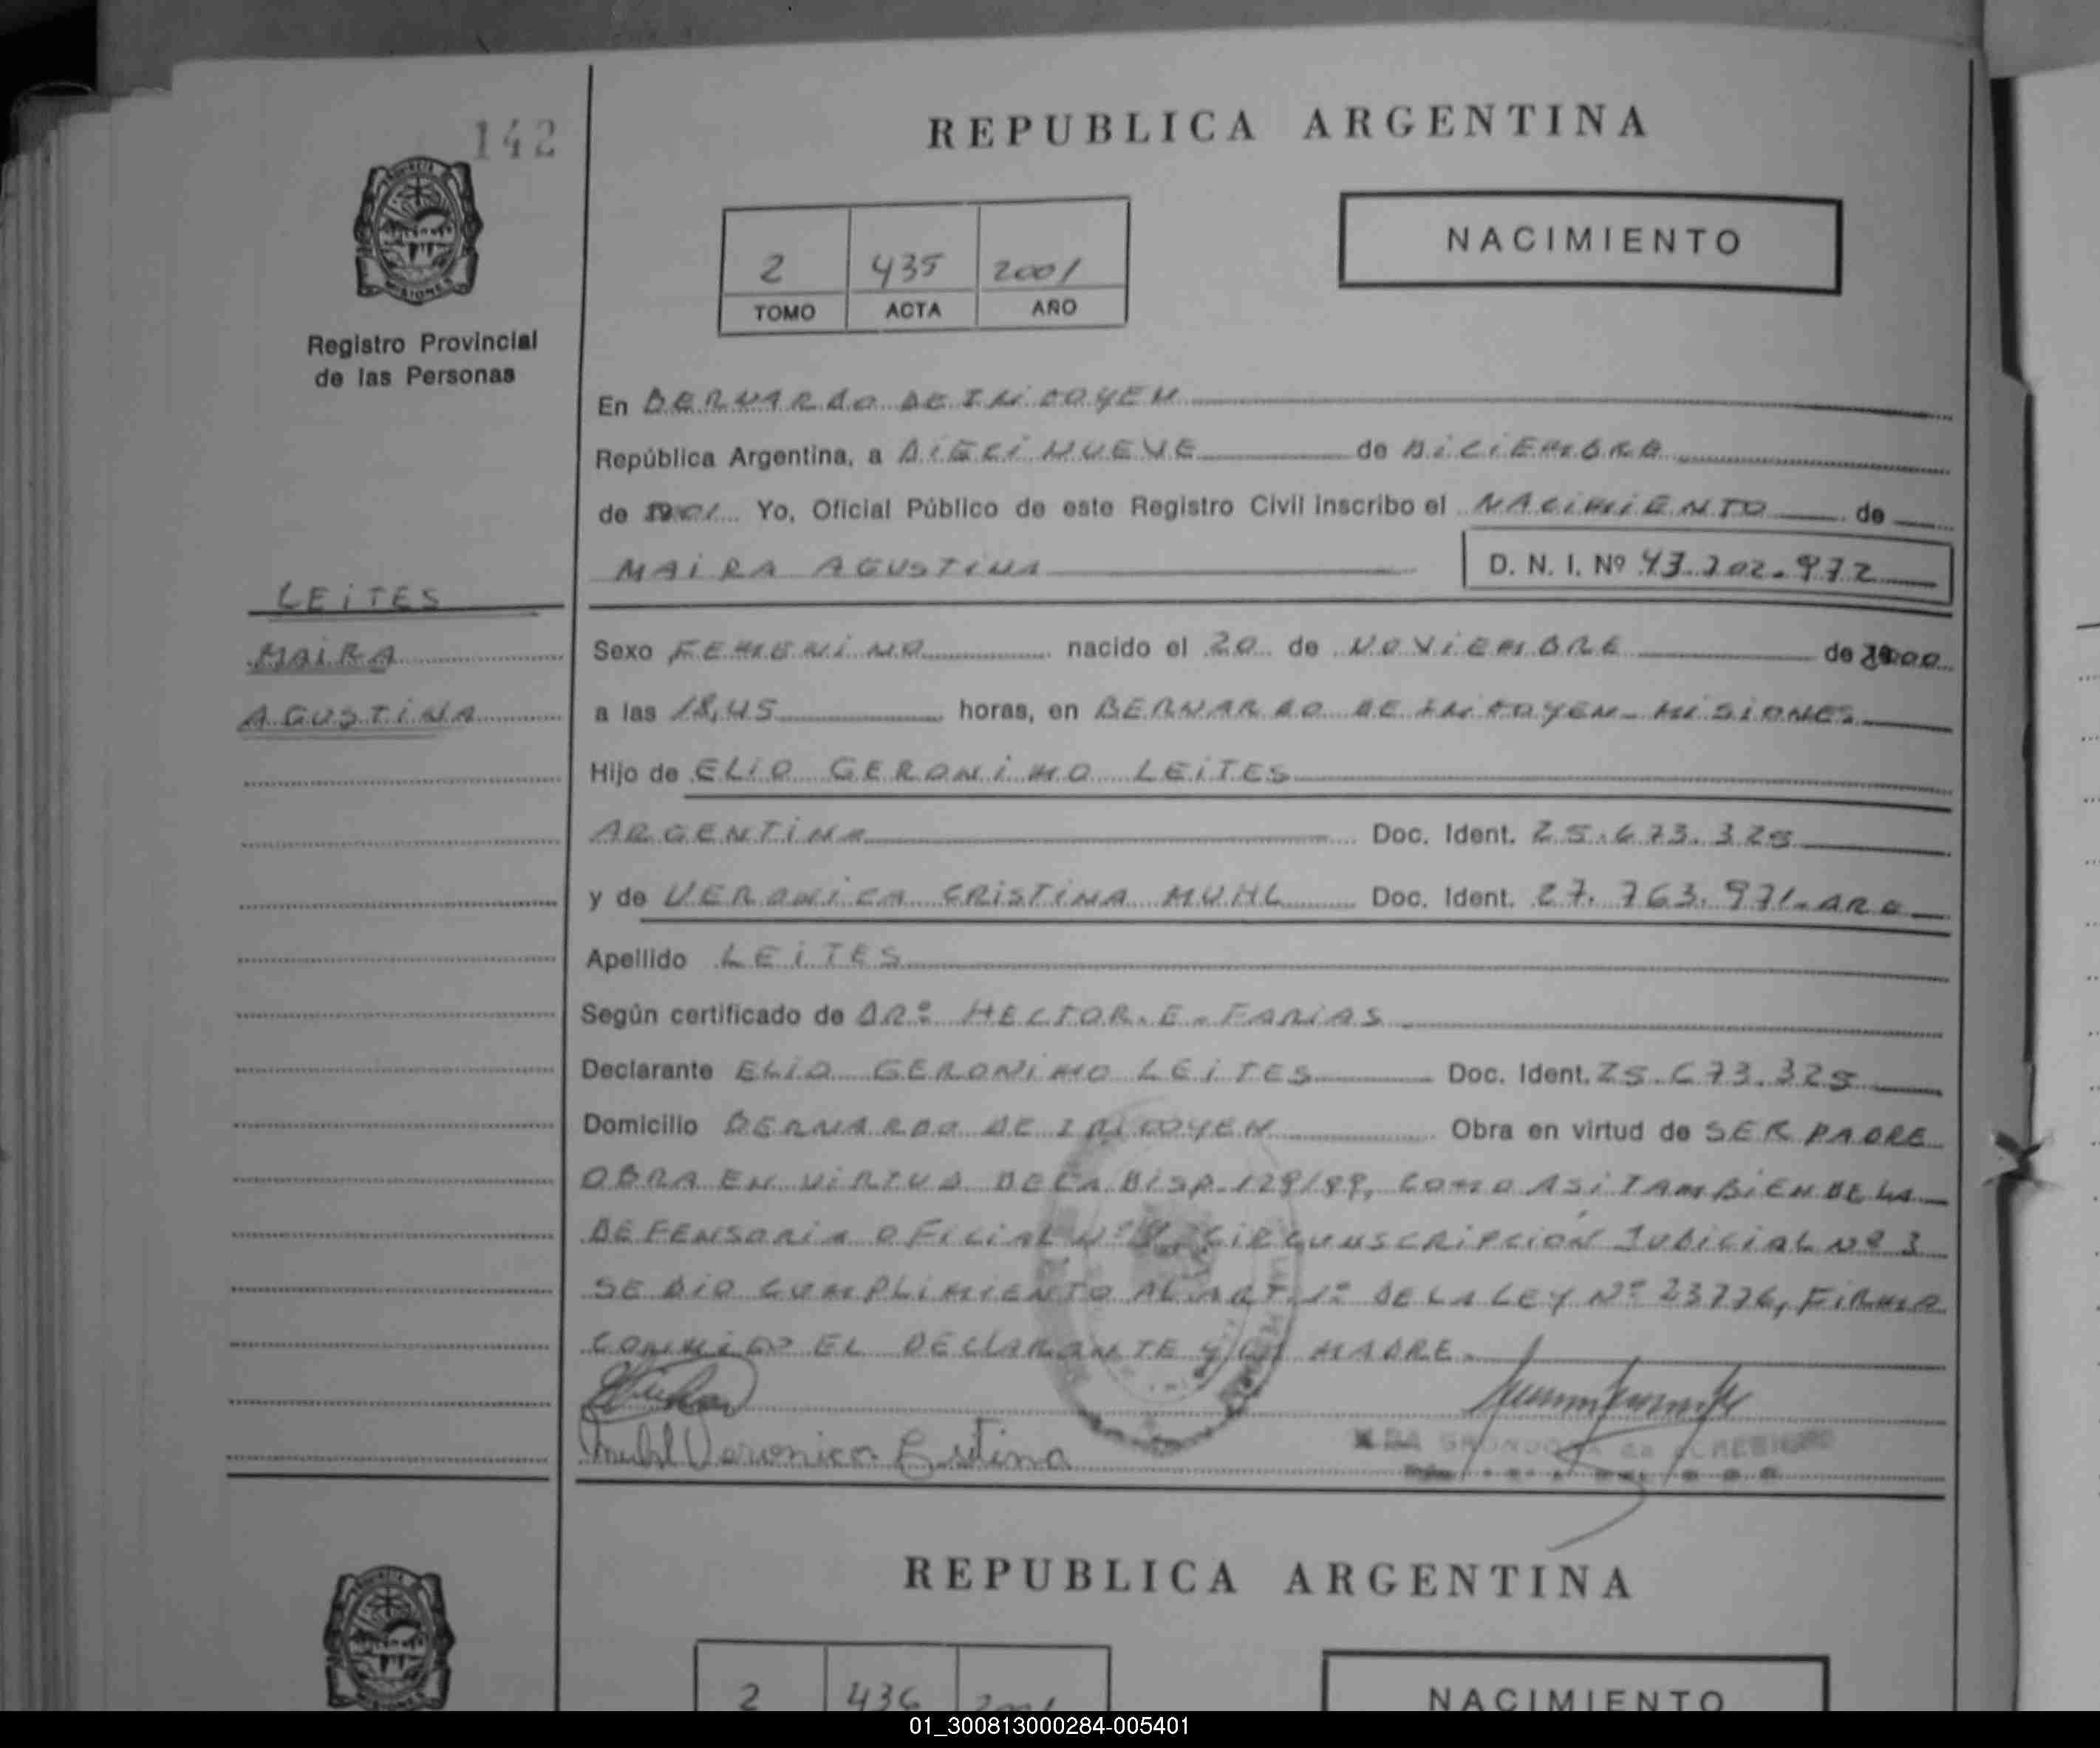 142
REPUBLICA ARGENTINA
MISIONES
Registro Provincial
de las Personas
2 435 2001
TOMO ACTA AÑO
NACIMIENTO
En BERNARDO DE IRIGOYEN
República Argentina, a DIECINUEVE de DICIEMBRE
de Yo, Oficial Público de este Registro Civil inscribo el NACIMIENTO de
MAIRA AGUSTINA
D. N. I. Nº 43.202.972
LEITES
MAIRA
AGUSTINA
Sexo FEMENINO nacido el 20 de NOVIEMBRE de 2000
a las 18,45 horas, en BERNARDO DE IRIGOYEN - MISIONES
Hijo de ELIO GERONIMO LEITES
ARGENTINA Doc. Ident. 25.673.325
y de VERONICA CRISTINA MUHL Doc. Ident. 27.763.971-ARG
Apellido LEITES
Según certificado de DR: HECTOR. E. FARIAS
Declarante ELIO GERONIMO LEITES Doc. Ident. 25.673.325
Domicilio BERNARDO DE IRIGOYEN Obra en virtud de SER PADRE
OBRA EN VIRTUD DE LA DISP. 129/89, COMO ASI TAMBIEN DE LA
DEFENSORIA OFICIAL CIRCUNSCRIPCION JUDICIAL Nº 3
SE DIO CUMPLIMIENTO AL ART. 1º DE LA LEY Nº 23776, FIRMA
CONMIGO EL DECLARANTE Y LA MADRE.
Muhl Veronica Cristina
REPUBLICA ARGENTINA
2 436 2001
NACIMIENTO
01_300813000284-005401